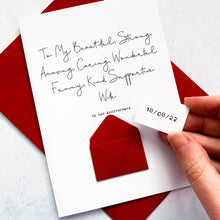 To My Beautiful, Strong
Amazing, Caring, Wonderful
Funny, Kind, Supportive
Wife
18/08/22